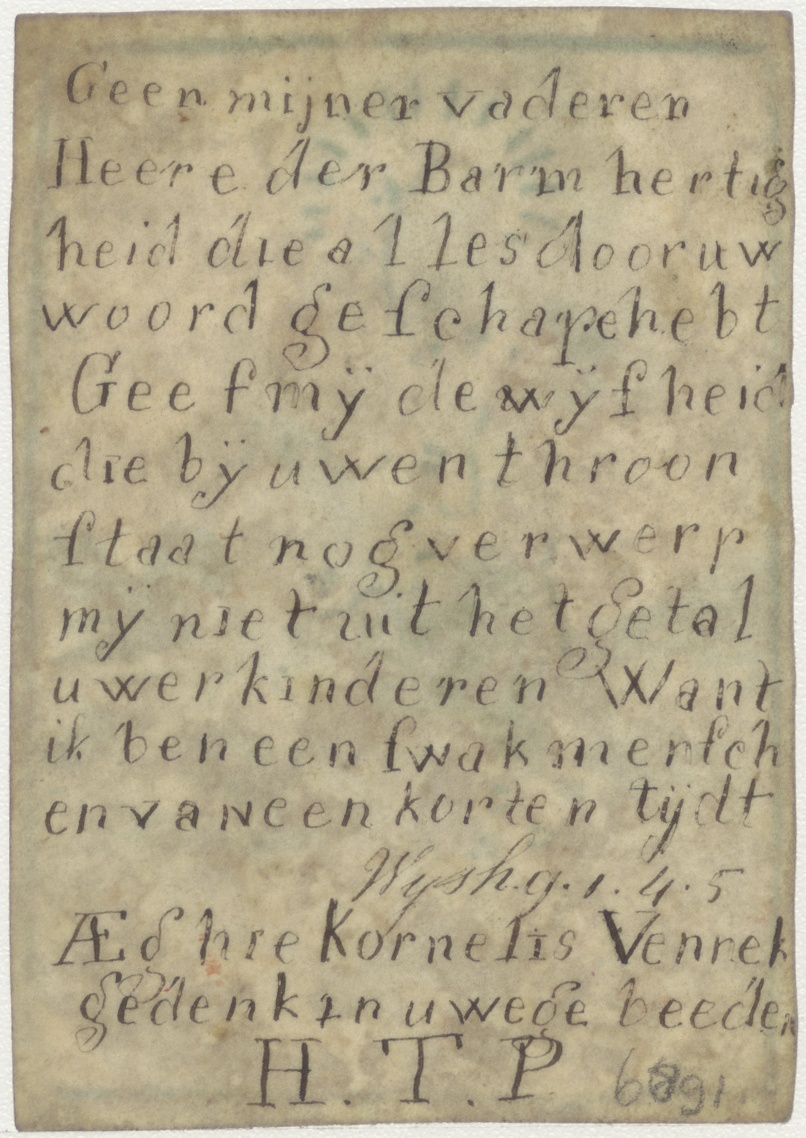 Geen mijner vaderen
Heere der Barm hertig
heid die alles door uw
woord geſchapehebt
Geef mÿ de wÿſheid
die bÿ uwen throon
ſtaat nog verwerp
mÿ niet uit het getal
uwer kinderen Want
ik ben een ſwak menſch
en van een korten tÿdt
Wyshg. 1. 4. 5
Æghie Kornelis Venrek
gedenk in uwe gebeeden
H. T. P